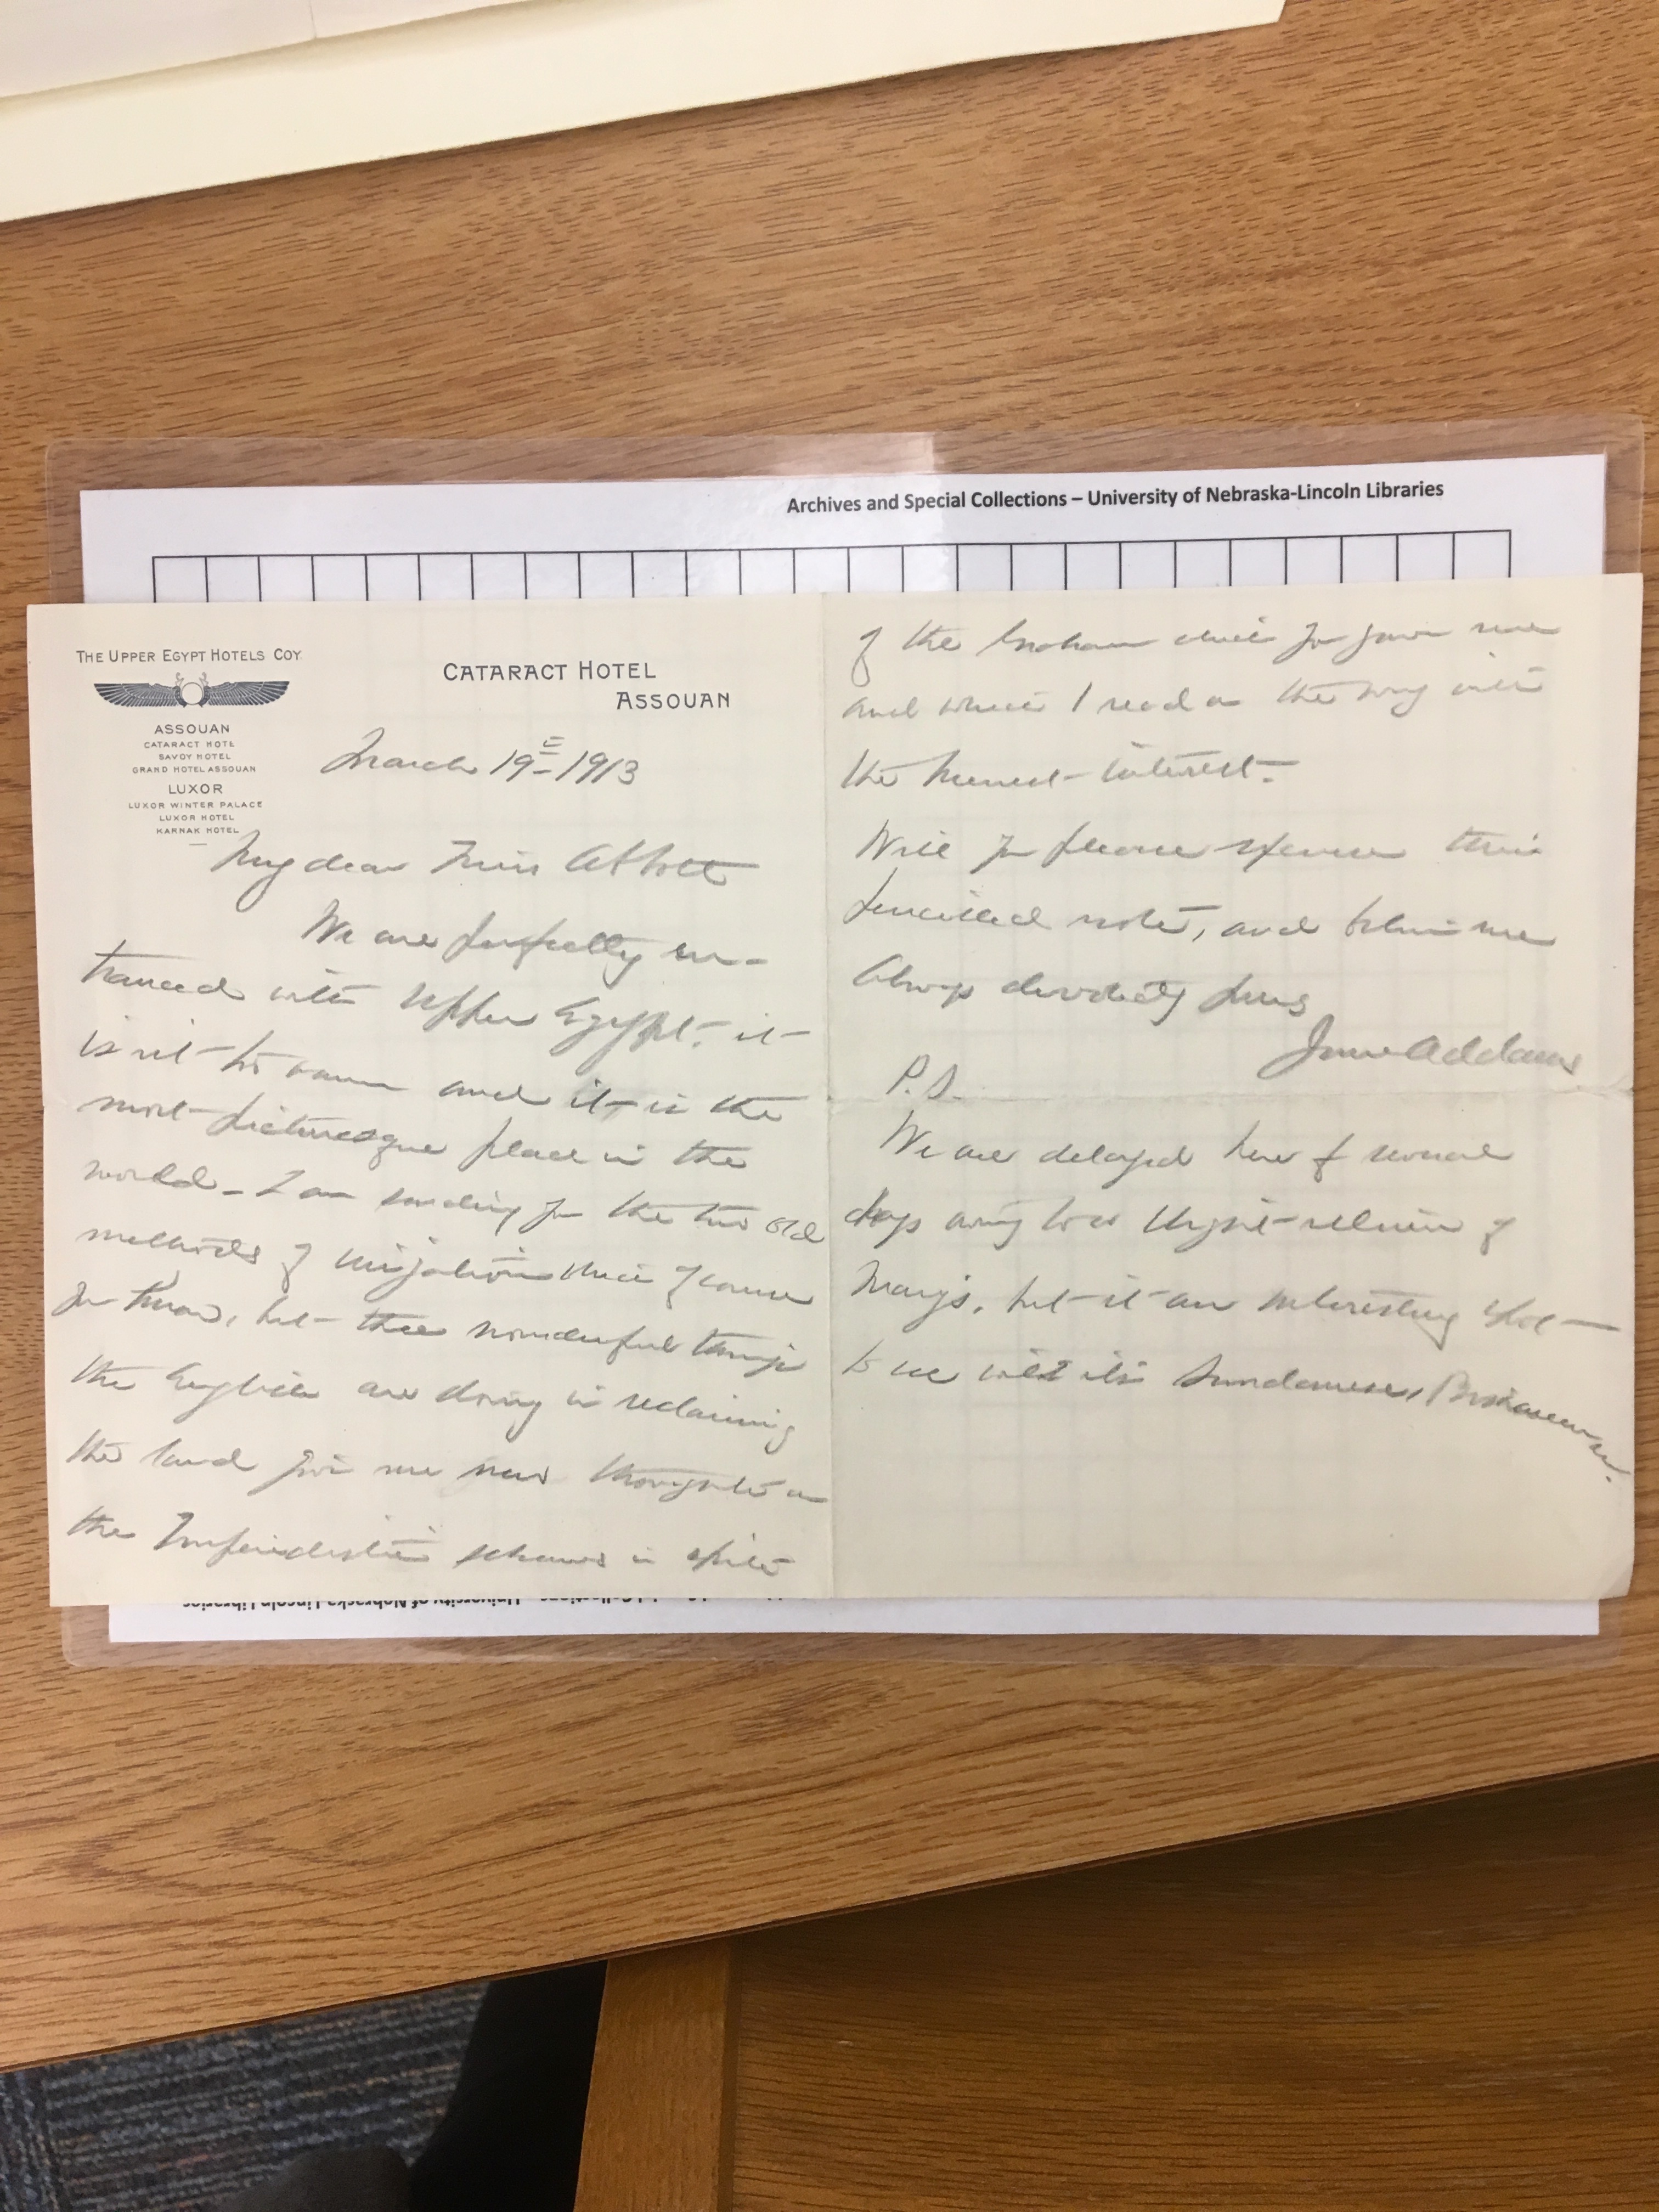 Archives and Special Collections – University of Nebraska-Lincoln Libraries
THE UPPER EGYPT HOTELS COY.
ASSOUAN
CATARACT HOTEL
SAVOY HOTEL
GRAND HOTEL ASSOUAN
LUXOR
LUXOR WINTER PALACE
LUXOR HOTEL
KARNAK HOTEL
CATARACT HOTEL
ASSOUAN
March 19" 1913
My dear Miss Abbott
We are perfectly en-
tranced with Upper Egypt, it
is not too warm and it is the
most picturesque place in the
world – I am sending you the two old
methods of irrigation which of course
you know, but the wonderful things
the English are doing in reclaiming
the land give me new thoughts on
the Imperialistic schemes in spite
of the which you gave me
and which I read on the way with
the keenest interest.
Will you please excuse this
pencilled note, and believe me
Always devotedly yours
Jane Addams
P.S.
We are delayed here for several
days owing to a slight illness of
Mary's, but it is an interesting spot
to see with its
University of Nebraska-Lincoln Libraries